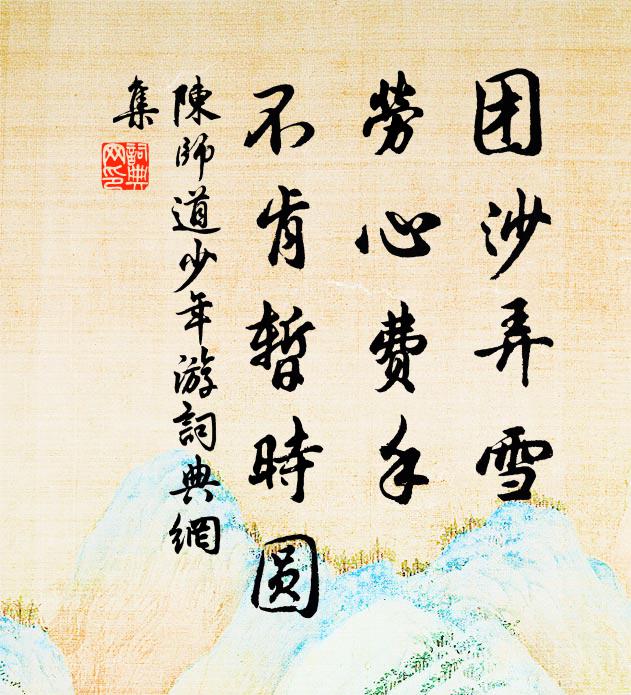 团沙弄雪
劳心费手
不肯暂時圆
陳師道少年游詞典網
集
詞典
网印